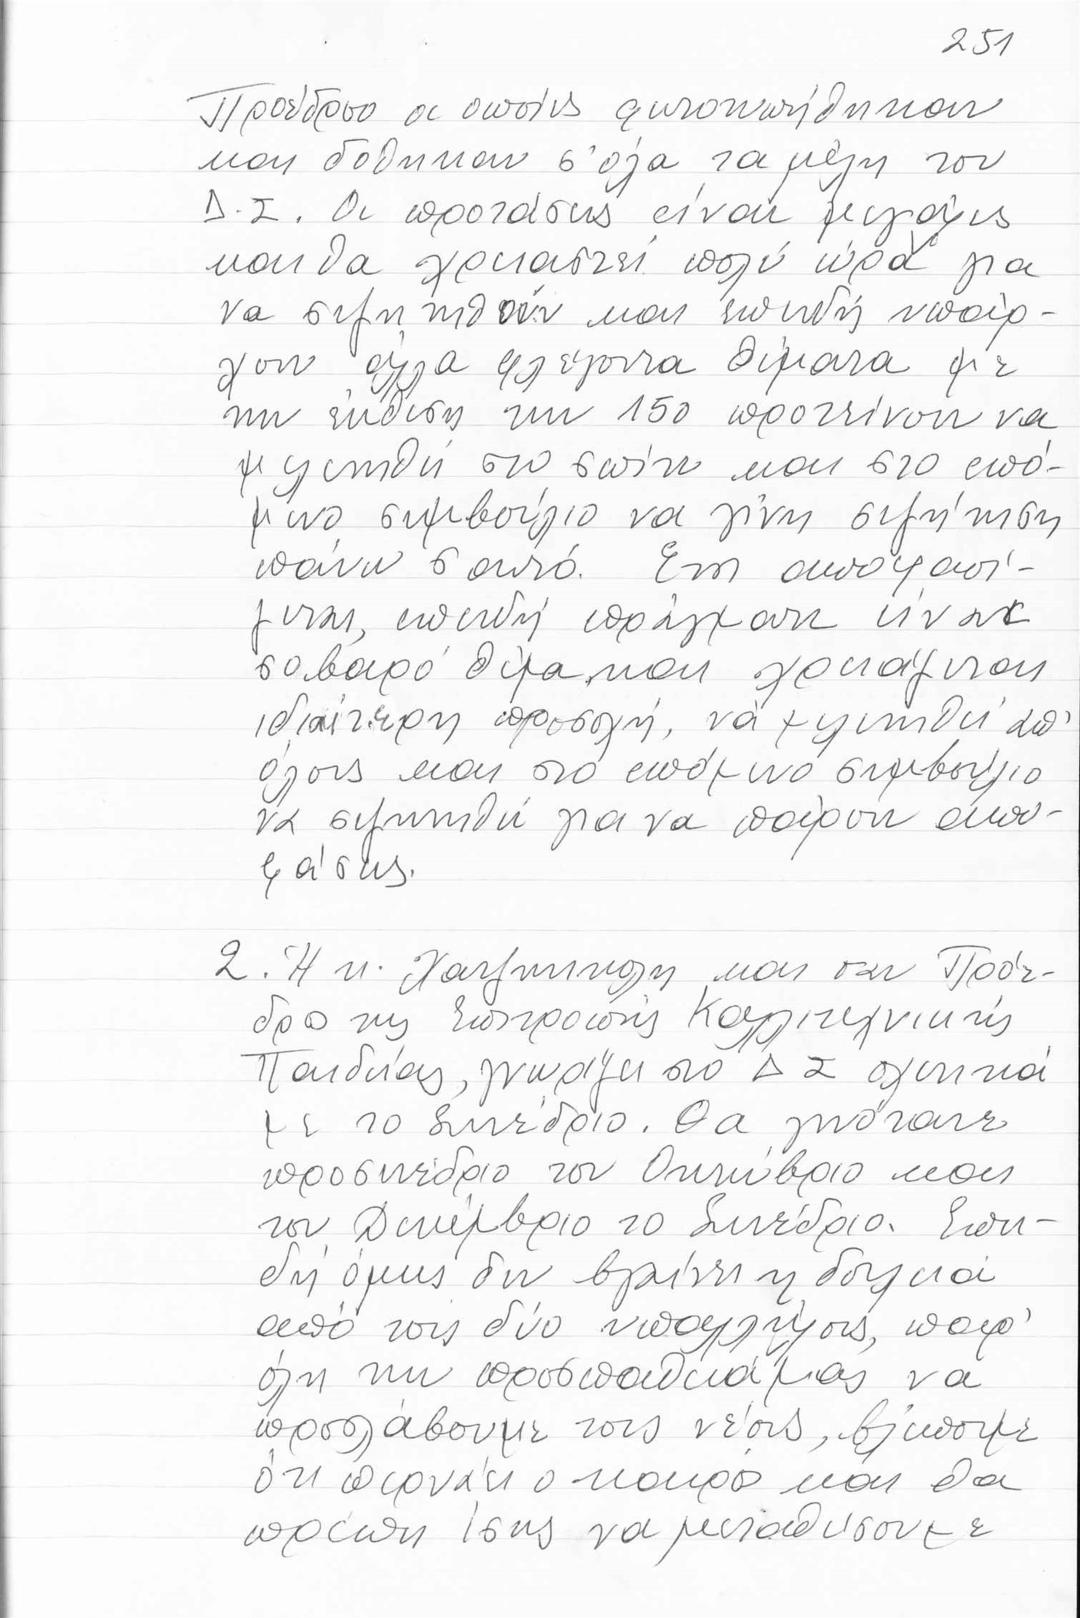 251
Πρόεδρο οι οποίες φωτοτυπήθηκαν
και δόθηκαν σ' όλα τα μέλη του
Δ.Σ. Οι προτάσεις είναι μεγάλες
και θα χρειαστεί πολύ ώρα για
να συζητηθούν και επειδή υπάρ-
χουν άλλα φλέγοντα θέματα με
την έκθεση των 150 προτείνουν να
μελετηθεί στο σπίτι και στο επό-
μενο συμβούλιο να γίνει συζήτηση
πάνω σ' αυτό. Έτσι αποφασί-
ζεται, επειδή πράγματι είναι
σοβαρό θέμα, και χρειάζεται
ιδιαίτερη προσοχή, να μελετηθεί απ'
όλους και στο επόμενο συμβούλιο
να συζητηθεί για να πάρουν απο-
φάσεις.
2. Η κ. Χατζηνικολή και σαν Πρόε-
δρο της Επιτροπής Καλλιτεχνικής
Παιδείας, γνωρίζει στο ΔΣ σχετικά
με το Συνέδριο. Θα γινότανε
προσυνέδριο τον Οκτώβριο και
τον Δεκέμβριο το Συνέδριο. Επει-
δή όμως δεν βγαίνει η δουλειά
από τους δύο υπαλλήλους, παρ'
όλη την προσπάθειά μας να
προσλάβουμε τους νέους, βλέπουμε
ότι περνάει ο καιρός και θα
πρέπει ίσως να μεταθέσουμε